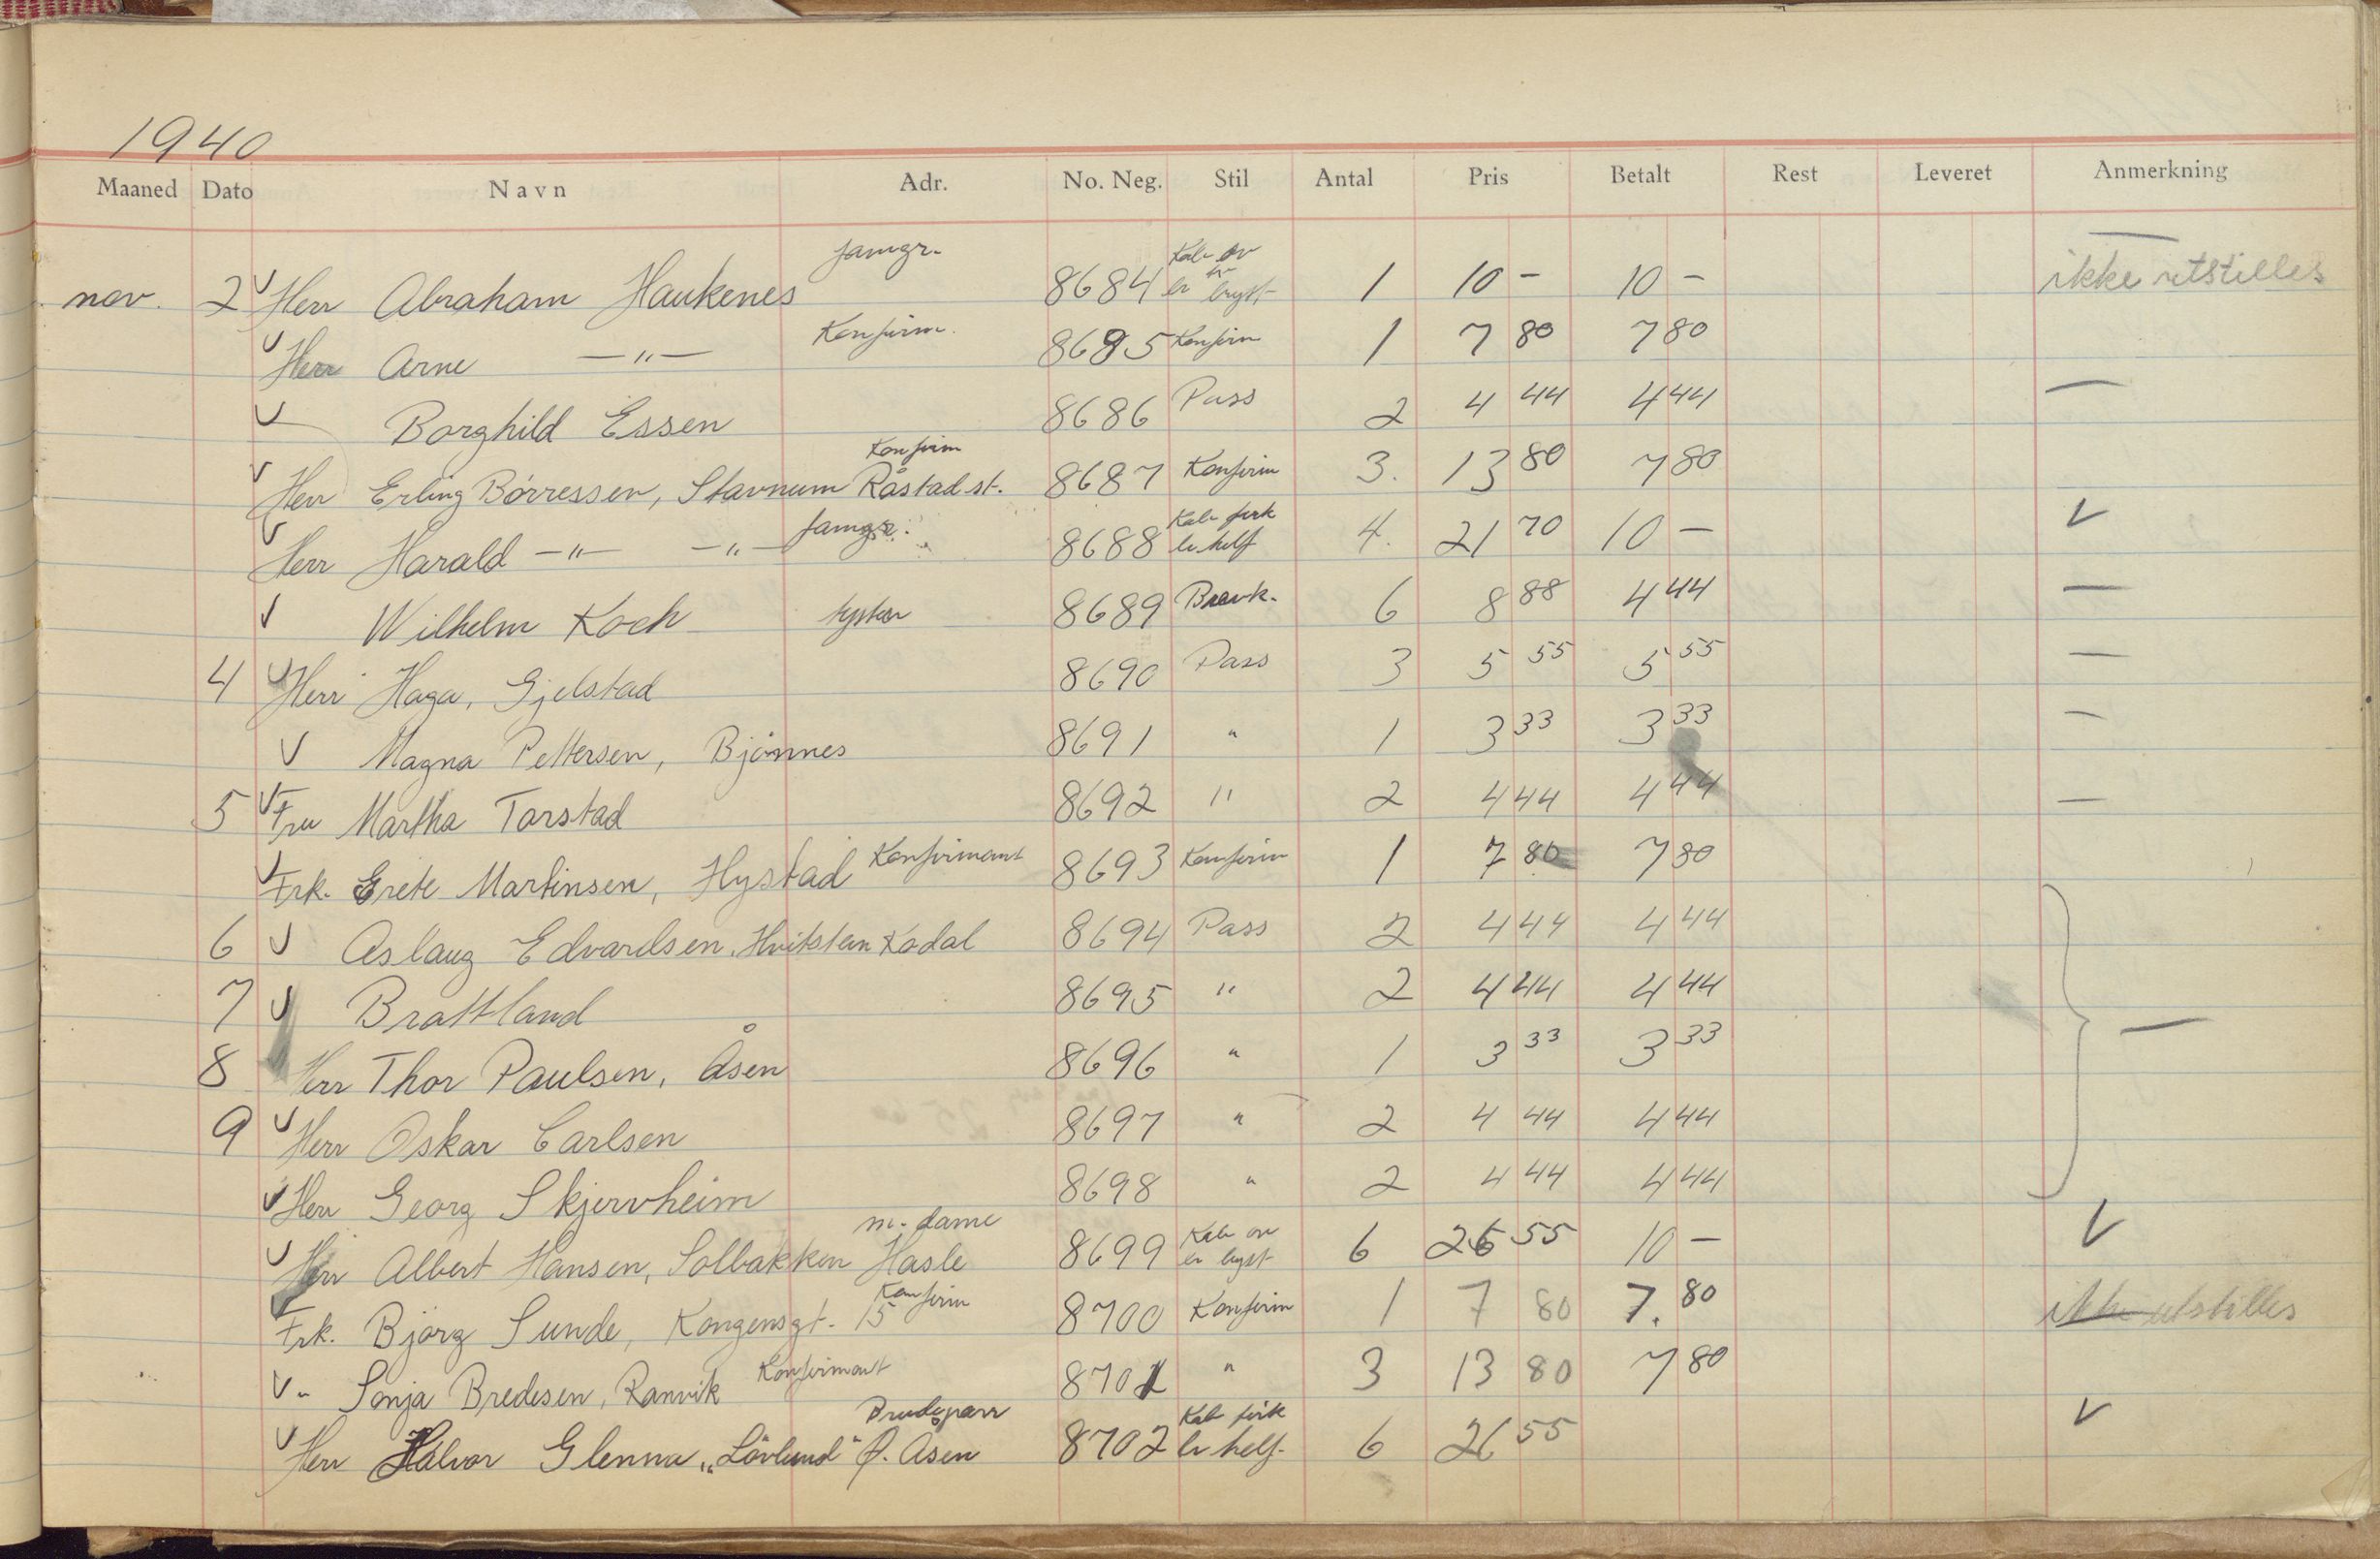 1940
Maaned Dato Navn Adr. No. Neg. Stil Antal Pris Betalt Rest Leveret Anmerkning
nov. 2 Herr Abraham Haukenes famgr. 8684 Kab bryst 1 10 - 10 - ikke utstilles
Herr Arne —"— Konfirm. 8685 Konfirm 1 7 80 7 80
Borghild Essen 8686 Pass 2 4 44 4 44 —
Herr Erling Börressen, Stavnum Råstad st. Konfirm 8687 Konfirm 3. 13 80 7 80
Herr Harald —"— —"— famgr. 8688 Kab helf 4. 21 70 10 — V
Wilhelm Koch tysker 8689 Brevk. 6 8 88 4 44 —
4 Herr Haga, Gjelstad 8690 Pass 3 5 55 5 55 —
Magna Pettersen, Bjönnes 8691 " 1 3 33 3 33 —
5 Fru Martha Torstad 8692 " 2 4 44 4 44 —
Frk. Grete Martinsen, Hystad Konfirmant 8693 Konfirm 1 7 80 7 80
6 Aslaug Edvardsen, Hvitstein Kodal 8694 Pass 2 4 44 4 44
7 Brattland 8695 " 2 4 44 4 44
8 Herr Thor Paulsen, Åsen 8696 " 1 3 33 3 33 —
9 Herr Oskar Carlsen 8697 " 2 4 44 4 44
Herr Georg Skjervheim 8698 " 2 4 44 4 44
Herr Albert Hansen, Solbakken Hasle m. dame 8699 Kab bryst 6 26 55 10 — V
Frk. Björg Sunde, Kongensgt. 15 Konfirm 8700 Konfirm 1 7 80 7. 80 ikke utstilles
" Sonja Bredesen, Ranvik Konfirmant 8701 " 3 13 80 7 80
Herr Halvor Glenna „Lövlund" Ø. Åsen Brudepar 8702 Kab helf. 6 26 55 V